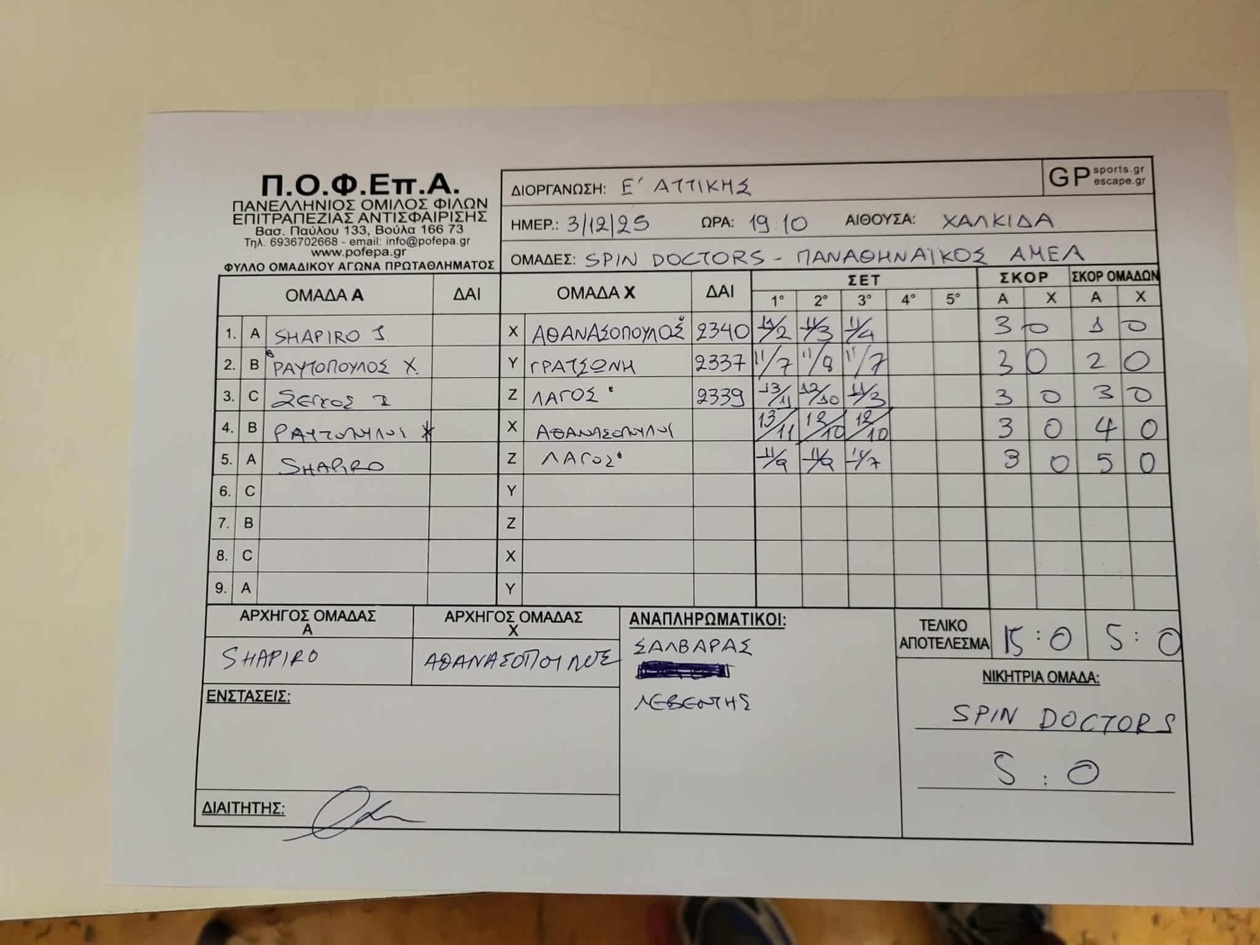 Π.Ο.Φ.Επ.Α.
ΠΑΝΕΛΛΗΝΙΟΣ ΟΜΙΛΟΣ ΦΙΛΩΝ
ΕΠΙΤΡΑΠΕΖΙΑΣ ΑΝΤΙΣΦΑΙΡΙΣΗΣ
Βασ. Παύλου 133, Βούλα 166 73
Τηλ. 6936702668 - email: info@pofepa.gr
www.pofepa.gr
ΦΥΛΛΟ ΟΜΑΔΙΚΟΥ ΑΓΩΝΑ ΠΡΩΤΑΘΛΗΜΑΤΟΣ
ΔΙΟΡΓΑΝΩΣΗ: Ε' ΑΤΤΙΚΗΣ
GP sports.gr
escape.gr
ΗΜΕΡ.: 3/12/25 ΩΡΑ: 19 10 ΑΙΘΟΥΣΑ: ΧΑΛΚΙΔΑ
ΟΜΑΔΕΣ: SPIN DOCTORS - ΠΑΝΑΘΗΝΑΪΚΟΣ ΑΜΕΑ
ΟΜΑΔΑ Α ΔΑΙ ΟΜΑΔΑ Χ ΔΑΙ ΣΕΤ ΣΚΟΡ ΣΚΟΡ ΟΜΑΔΩΝ
1° 2° 3° 4° 5° Α Χ Α Χ
1. A SHAPIRO J. X ΑΘΑΝΑΣΟΠΟΥΛΟΣ 2340 11/2 11/3 11/4 3 0 1 0
2. B ΡΑΥΤΟΠΟΥΛΟΣ Χ. Y ΓΡΑΤΣΩΝΗ 2337 11/7 11/8 11/7 3 0 2 0
3. C Z ΛΑΓΟΣ 2339 13/11 12/10 11/3 3 0 3 0
4. B ΡΑΥΤΟΠΟΥΛΟΙ Χ X ΑΘΑΝΑΣΟΠΟΥΛΟΙ 13/11 12/10 12/10 3 0 4 0
5. A SHAPIRO Z ΛΑΓΟΣ 11/9 11/9 11/7 3 0 5 0
6. C Y
7. B Z
8. C X
9. A Y
ΑΡΧΗΓΟΣ ΟΜΑΔΑΣ
Α
ΑΡΧΗΓΟΣ ΟΜΑΔΑΣ
Χ
SHAPIRO ΑΘΑΝΑΣΟΠΟΥΛΟΣ
ΑΝΑΠΛΗΡΩΜΑΤΙΚΟΙ:
ΣΑΛΒΑΡΑΣ
ΛΕΒΕΝΤΗΣ
ΤΕΛΙΚΟ
ΑΠΟΤΕΛΕΣΜΑ 15 : 0 5 : 0
ΝΙΚΗΤΡΙΑ ΟΜΑΔΑ:
SPIN DOCTORS
5 : 0
ΕΝΣΤΑΣΕΙΣ:
ΔΙΑΙΤΗΤΗΣ: